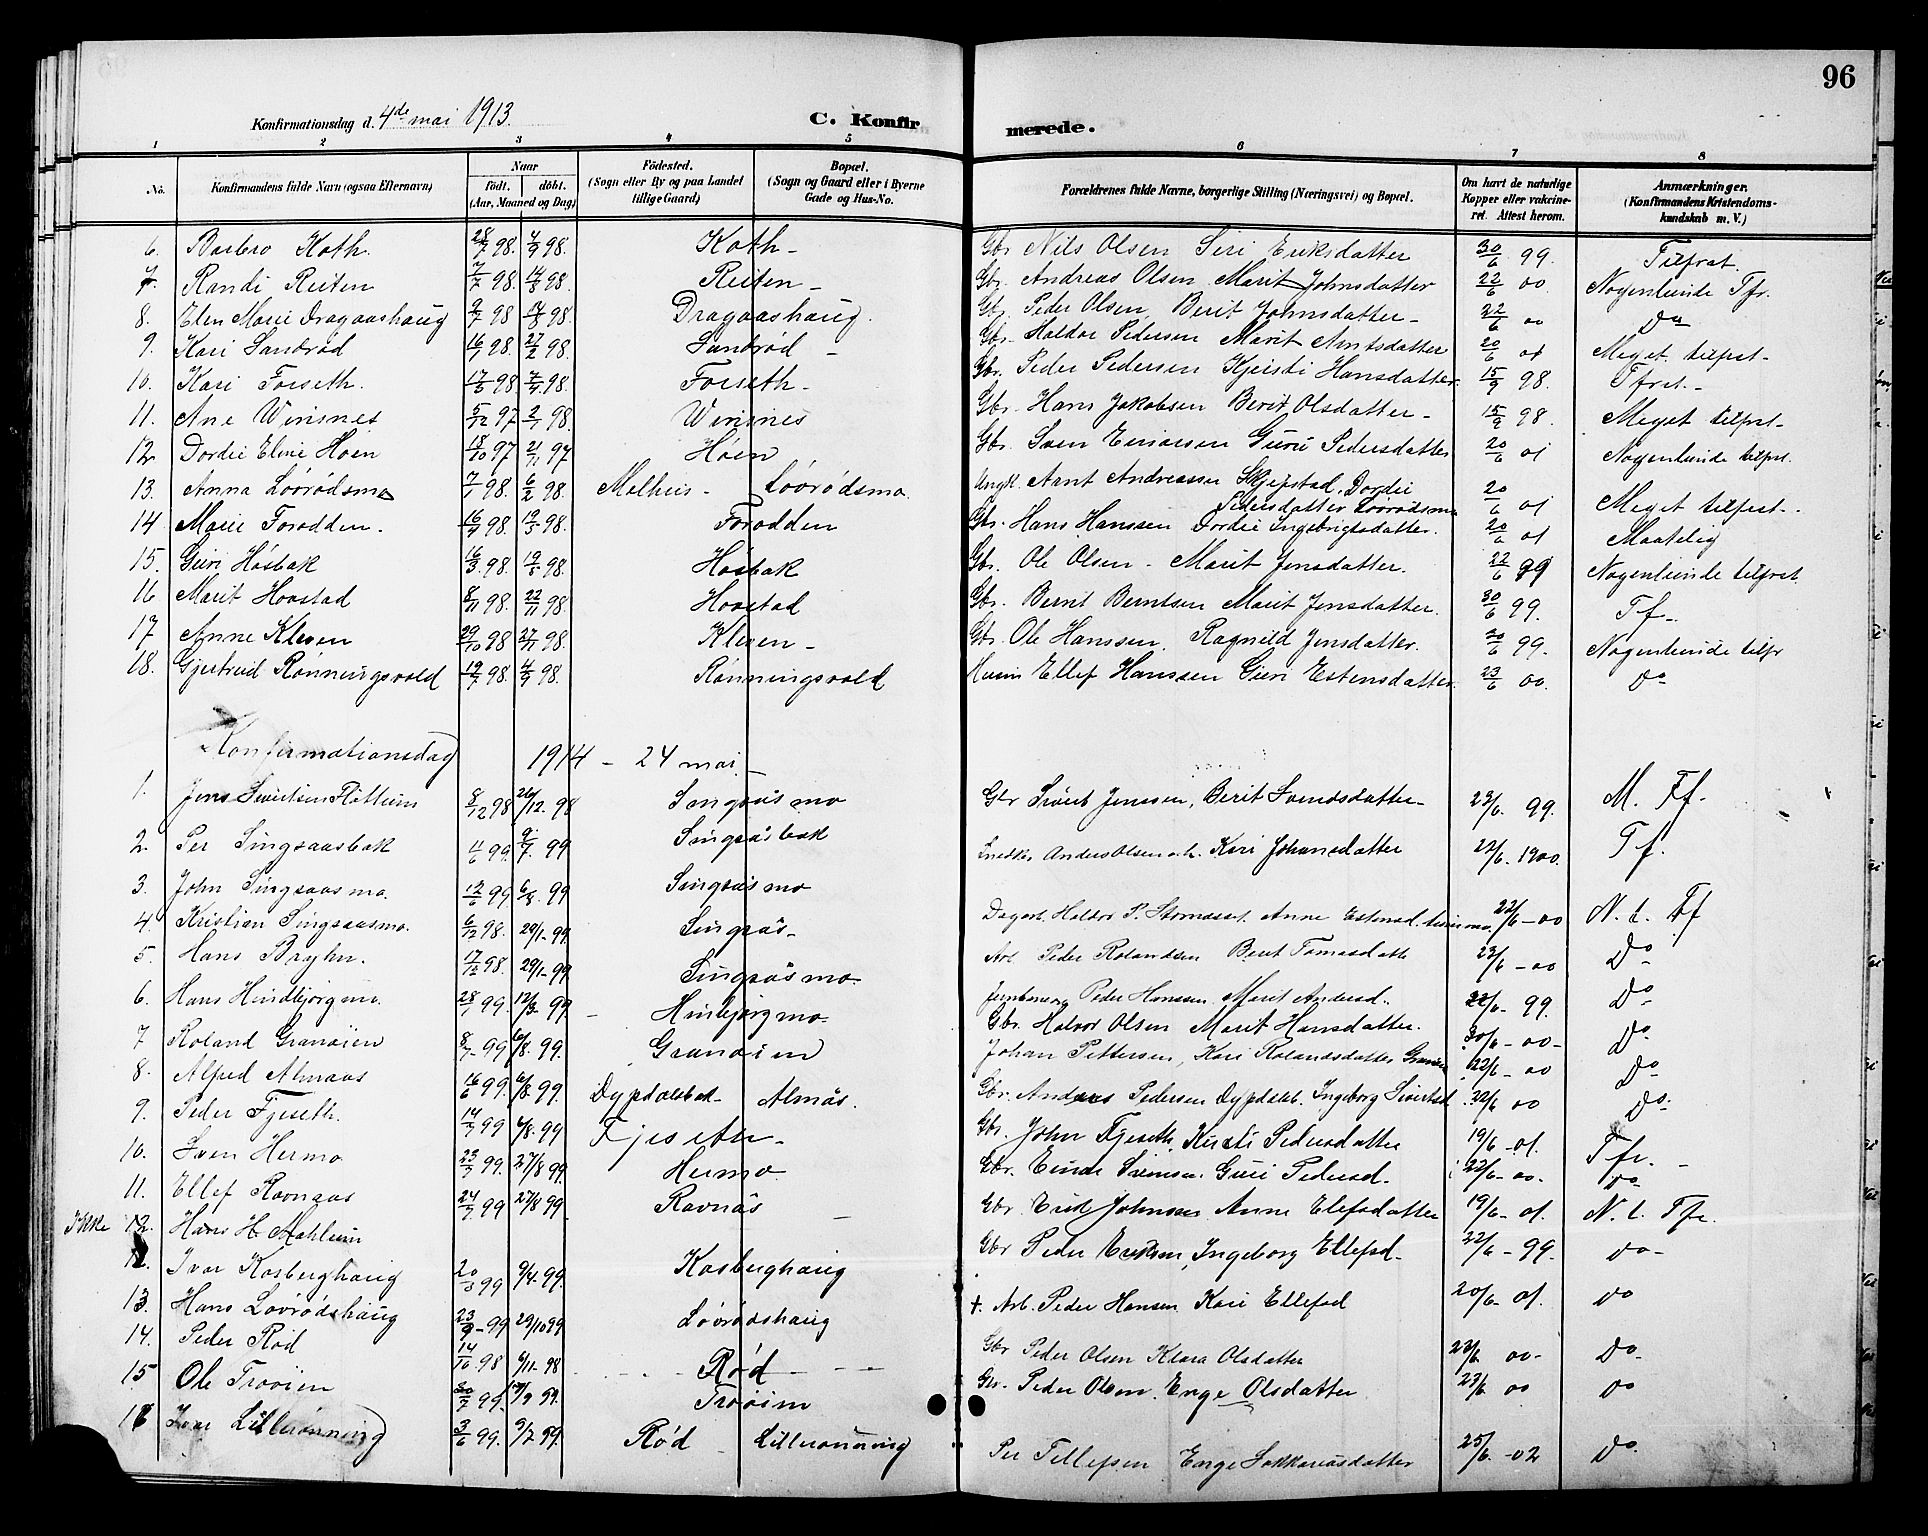 96
Konfirmationsdag d. 4de mai 1913.
C. Konfirmerede.
1 2 3 4 5 6 7 8
No.
Konfirmandens fulde Navn (ogsaa Efternavn)
Naar
födt. döbt.
(Aar, Maaned og Dag)
Födested.
(Sogn eller By og paa Landet tillige Gaard)
Bopæl.
(Sogn og Gaard eller i Byerne Gade og Hus-No.
Forældrenes fulde Navne, borgerlige Stilling (Næringsvei) og Bopæl.
Om havt de naturlige Kopper eller vakcineret. Attest herom.
Anmærkninger.
(Konfirmandens Kristendomskundskab m. V.)
6. Barbro Koth. 28/7 98. 4/9 98. Koth - Gbr Nils Olsen Siri Eriksdatter 30/6 99. Tilfrst.
7. Randi Reiten 7/7 98. 14/8 98. Reiten - Gbr. Andreas Olsen Marit Johnsdatter 22/6 00 Nogenlunde Tfr.
8. Elen Marie Dragaashaug 9/7 98 14/8 98. Dragaashaug. Gbr. Peder Olsen, Berit Johnsdatter - 22/6 00 Do
9. Kari Sandrød 16/1 98. 27/2 98. Sandrød - Gbr. Haldor Pedersen Marit Arntsdatter 20/6 01 Meget tilfrst.
10. Kari Forseth. 17/3 98. 7/4 98. Forseth - Gbr. Peder Pedersen Kjersti Hansdatter. 15/9 98. Tfret. -
11. Ane Winsnes 5/12 97 2/1 98. Winsnes Gbr. Hans Jakobsen Berit Olsdatter - 15/9 98. Meget tilfrst.
12 Dordi Eline Hoen 18/10 97 21/11 97 Høen Gbr. Sven Einarsen Guru Pedersdatter 20/6 01 Nogenlunde tilfrst.
13. Anna Lovrødsmo 7/1 98. 6/2 98. Melhus - Løvrødsmo. Ungk. Arnt Andreassen Skjepstad. Dordi
Pedersdatter Lovrødsmo 20/6 01 Meget tilfrst.
14 Marie Forodden. 16/4 98. 19/5 98. Forodden Gbr. Hans Hanssen Dordi Ingebrigtsdatter. 20/6 01 Maatelig
15. Guri Høsbak 16/3 98. 19/5 98. Høsbak Gbr. Ole Olsen - Marit Jensdatter. 22/6 99 Nogenlunde tilfrst
16 Marit Hovstad 8/11 98. 22/11 98. Hovstad Gbr. Bernt Berntsen Marit Jensdatter. 30/6 99. Tf -
17 Anne Kleven 29/10 98 27/11 98. Kleven - Gbr. Ole Hanssen. Ragnild Jensdatter. 20/6 99. Nogenlunde tilfr
18. Gjertrud Rønningsvold 19/7 98. 4/9 98. Rønningsvold Husm Ellef Hanssen Guri Estensdatter. 23/6 00. Do
Konfirmationsdag 1914 - 24 mai -
1. Jens Sivertsen Flöttum 8/12 98 26/12. 98 Singsås mo Gbr Sivert Jenssen, Berit Svendsdatter - 23/6. 99. M. Tf.
2. Per Singsaasbak 11/6 99. 9/7. 99 Singsås bak Snedker Anders Olsen Kari Johansdatter 22/6. 1900. Tf.
3. John Singsaas mo. 12/6 99 6/8. 99 Singsås mo
4. Kristian Singsaasmo. 6/12 98. 29/1-99. Singsås - Dagarb. Haldor P. Anne Estensd. 22/6 - 00 N. l. Tf
5. Hans Bryhn. 17/12 98. 29/1-99. Singsås mo Arb. Peder Rolandsen Berit Tomasdatt 23/6 - 00 Do
6. Hans Hindbjørg mo. 28/1 99. 12/3 99 Hinbjørg mo. Peder Hanssen, Marit Andersd.. 22/6 - 99. Do
7 Roland Granøien 8/7 - 99 6/8. 99. Granøien Gbr. Halvor Olsen Marit Hansdatter. 30/6 - 00 - Do
8. Alfred Almaas 16/6 99. 6/8. 99. Dypdalsbak - Almås. Johan Pettersen, Kari Rolandsdatter 22/6 - 00 Do
9. Peder Fjeseth. 14/7 99 6/8. 99 Fjeseth - Gbr. Anders Pedersen Dypdalsb. Ingeborg Sivertsd. 22/6 00 Do.
10. Sven Hermo 23/7 99. 27/8 99. Hermo Gbr. John Fjeseth, Kirsti Pedersdatter 19/6 - 01. Tfr. -
11. Ellef Ravnaas 24/7 99 27/8 99. Ravnås - Gbr. Einar Guri Pedersd. 22/6 - 00. Do
Ikke 12. Hans H. Mahlum Gbr. Erik Johnsen Anne Elefsdatter 19/6 - 01. N. l. Tfr.
12. Ivar Kosberghaug 20/3 99 9/4. 99. Kosberghaug Gbr Peder Eriksen, Ingeborg Ellefsd - 22/6 - 99. Do -
13. Hans Lovrødshaug 23/9 - 99 29/10 99 Lovrødshaug +. Arb. Peder Hansen, Kari Ellefsd 20/6 - 01. Do
14. Peder Rød 14/10. 98 6/11 - 98 Rød - - Gbr Peder Olsen Klara Olsdatter 22/6 00 - Do
15 Ole Trøøien 30/7 99. 17/9 99. Trøøien Gbr. Peder Olsen. Enge Olsdatter 23/6 00 Do
16 Ivar Lillerønning 3/6 99. 9/7 99. Rød - Lillerønning Per Tellefsen Enge Sakkariasdatter 25/6 - 02 Do